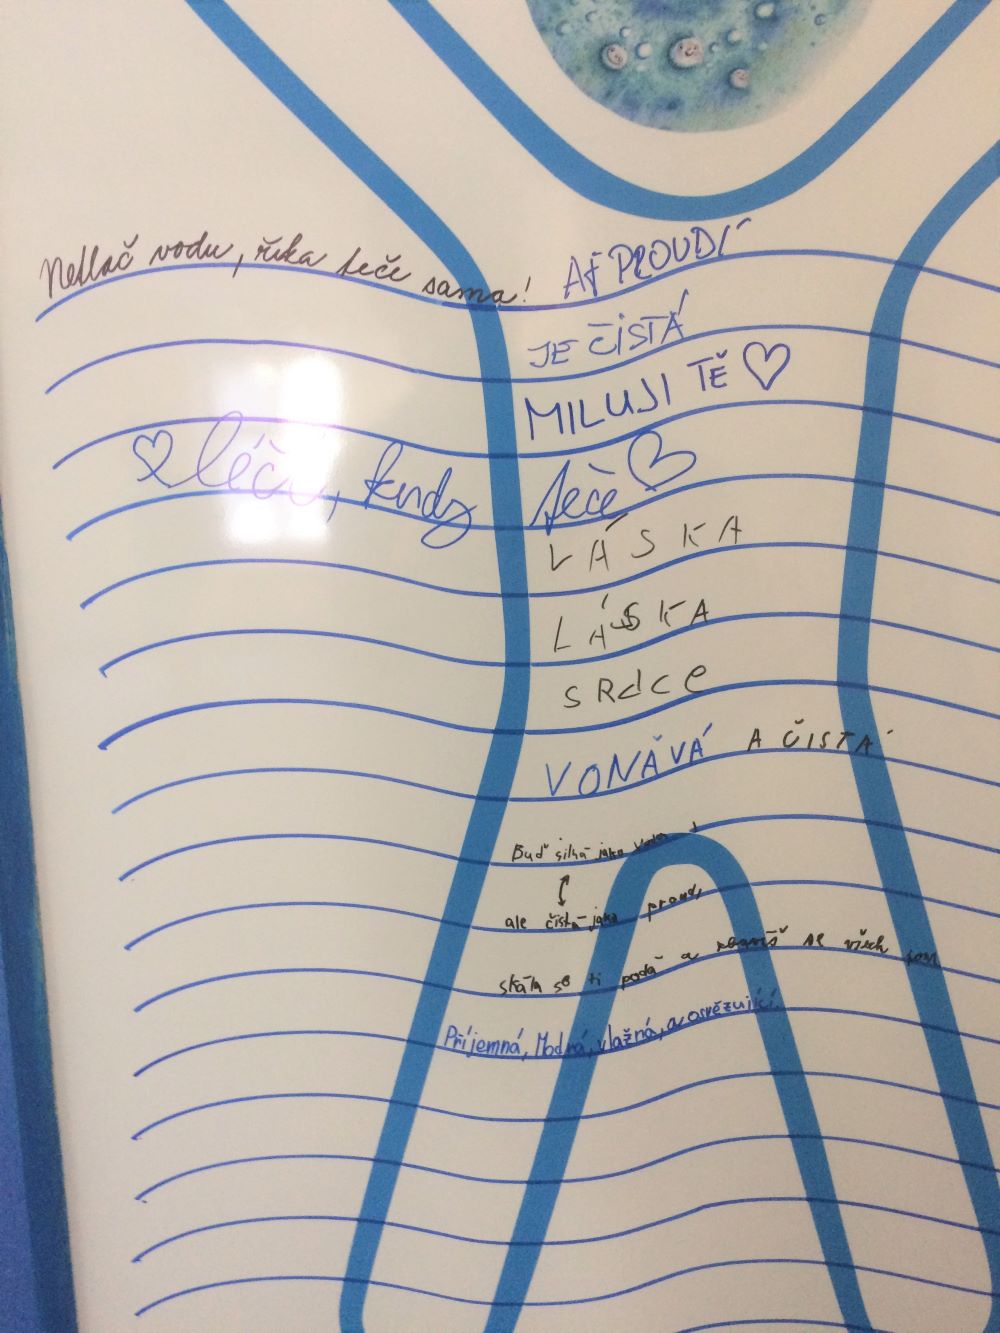 Netlač vodu, řeka teče sama!
AŤ PROUDÍ
JE ČISTÁ
MILUJI TĚ
léčí, kudy teče
LÁSKA
LÁSKA
SRdce
VOŇAVÁ A ČISTÁ
Buď silná jako voda
ale čistá jako proud,
skála se ti poddá a zbavíš se všech
Příjemná, Modrá, vlažná, a osvěžující.